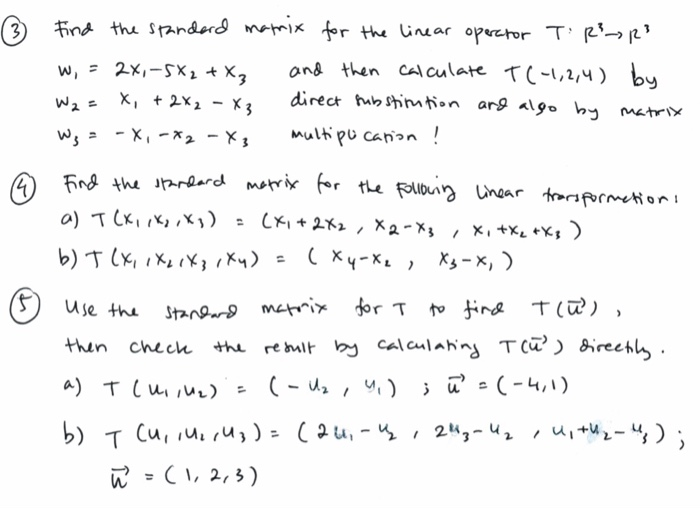 ③ Find the standard matrix for the linear operator T: R³→R³
w₁ = 2x₁-5x₂ + x₃ and then calculate T(-1,2,4) by
w₂ = x₁ + 2x₂ - x₃ direct substitution and also by matrix
w₃ = -x₁ -x₂ - x₃ multiplication !
④ Find the standard matrix for the following linear transformation:
a) T(x₁,x₂,x₃) = (x₁+2x₂, x₂-x₃, x₁+x₂+x₃)
b) T(x₁,x₂,x₃,x₄) = (x₄-x₂, x₃-x₁)
⑤ Use the standard matrix for T to find T(u⃗),
then check the result by calculating T(u⃗) directly.
a) T(u₁,u₂) = (-u₂, u₁) ; u⃗ = (-4,1)
b) T(u₁,u₂,u₃) = (2u₁-u₂, 2u₃-u₂, u₁+u₂-u₃);
u⃗ = (1,2,3)